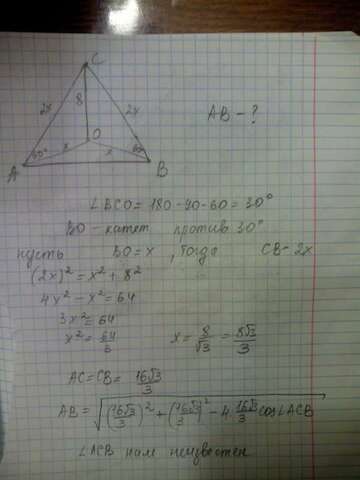 C
2x
8
2x
AB - ?
O
x
x
60°
60°
A
B
∠BCO = 180 - 90 - 60 = 30°
BO - катет против 30°
пусть BO = x, тогда CB = 2x
(2x)² = x² + 8²
4x² - x² = 64
3x² = 64
x² = 64/3
x = 8/√3 = 8√3/3
AC = CB = 16√3/3
AB = √((16√3/3)² + (16√3/3)² - 4·16√3/3 cos∠ACB
∠ACB нам неизвестен